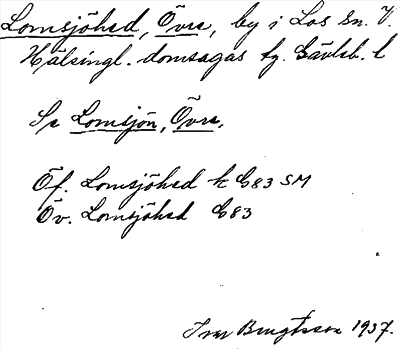 Lomsjöhed, Övre, by i Los sn. V.
Hälsingl. domsagas tg. Gävleb. l
Se Lomsjön, Övre.
Öf. Lomsjöhed k G83 SM
Öv. Lomsjöhed G83
Ivar Bengtsson 1937.